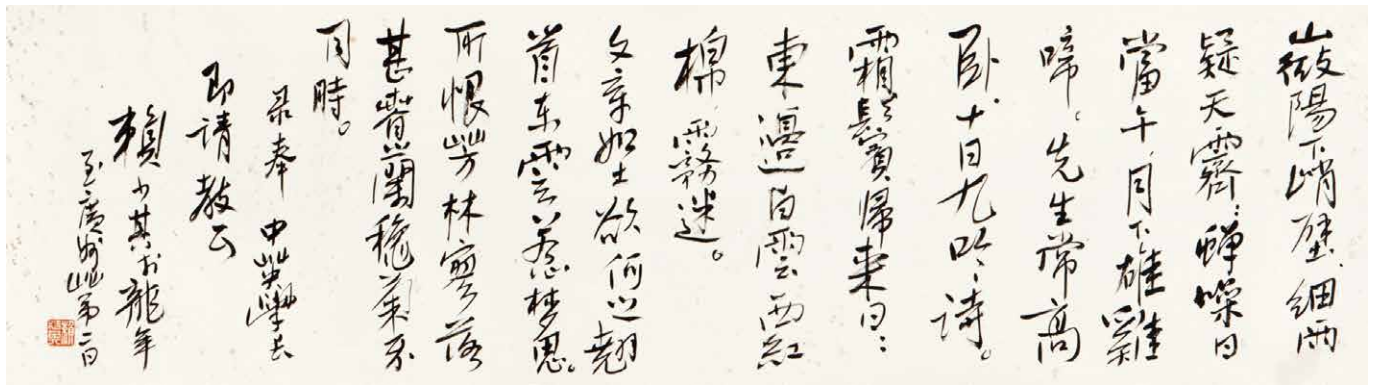 山微陽下峭壁、細雨
疑天霽；蟬噪日
當午，月下雄雞
啼。先生常高
臥，十日九吟詩。
霜鬢歸來日：
東邊白雲西紅
棉，霧迷。
文章如土欲何之翹
首東雲惹夢思。
所恨芳林寥落
甚春蘭秋菊不
同時。
录奉 中英學長
即请教正
賴少其於龍年
至廣州第二日